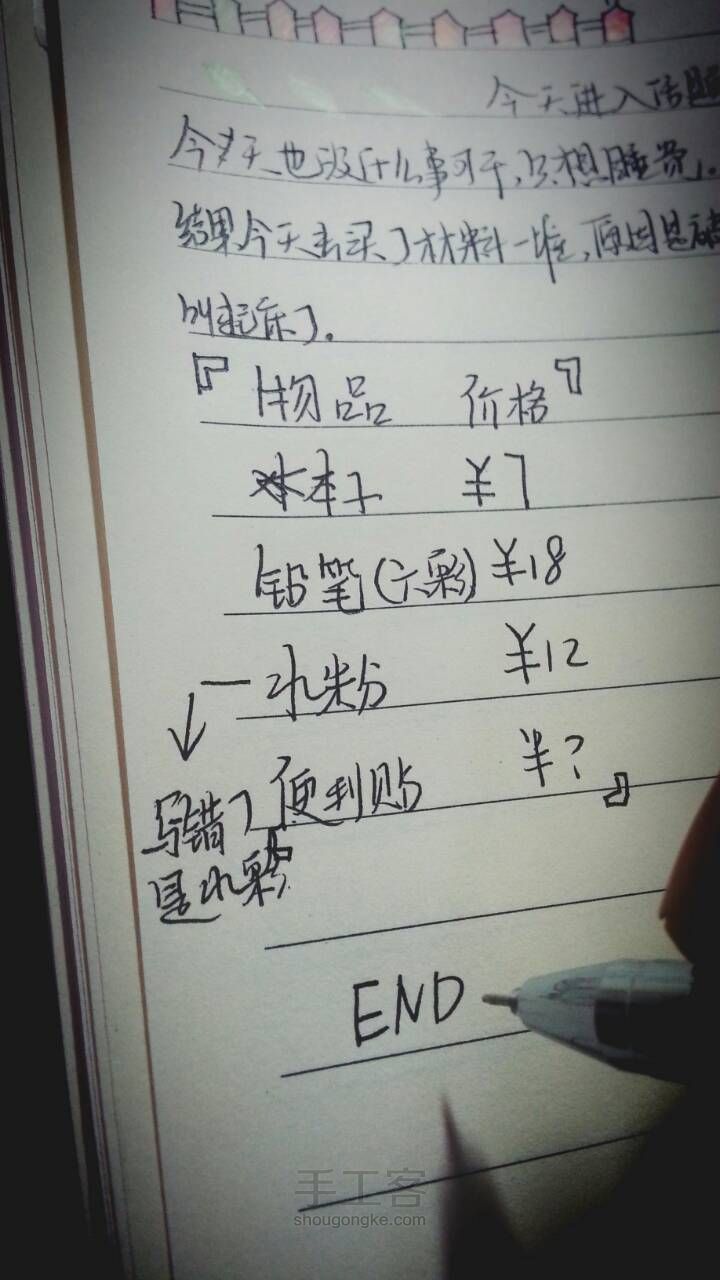 今天进入话题
今天也没什么事可干，只想睡觉，
结果今天去买了材料一堆，原因是被
叫起床了．
『物品 价格』
本子 ￥7
铅笔(六彩) ￥18
水粉 ￥12
便利贴 ￥？』
写错了
是水彩
END
手工客
shougongke.com